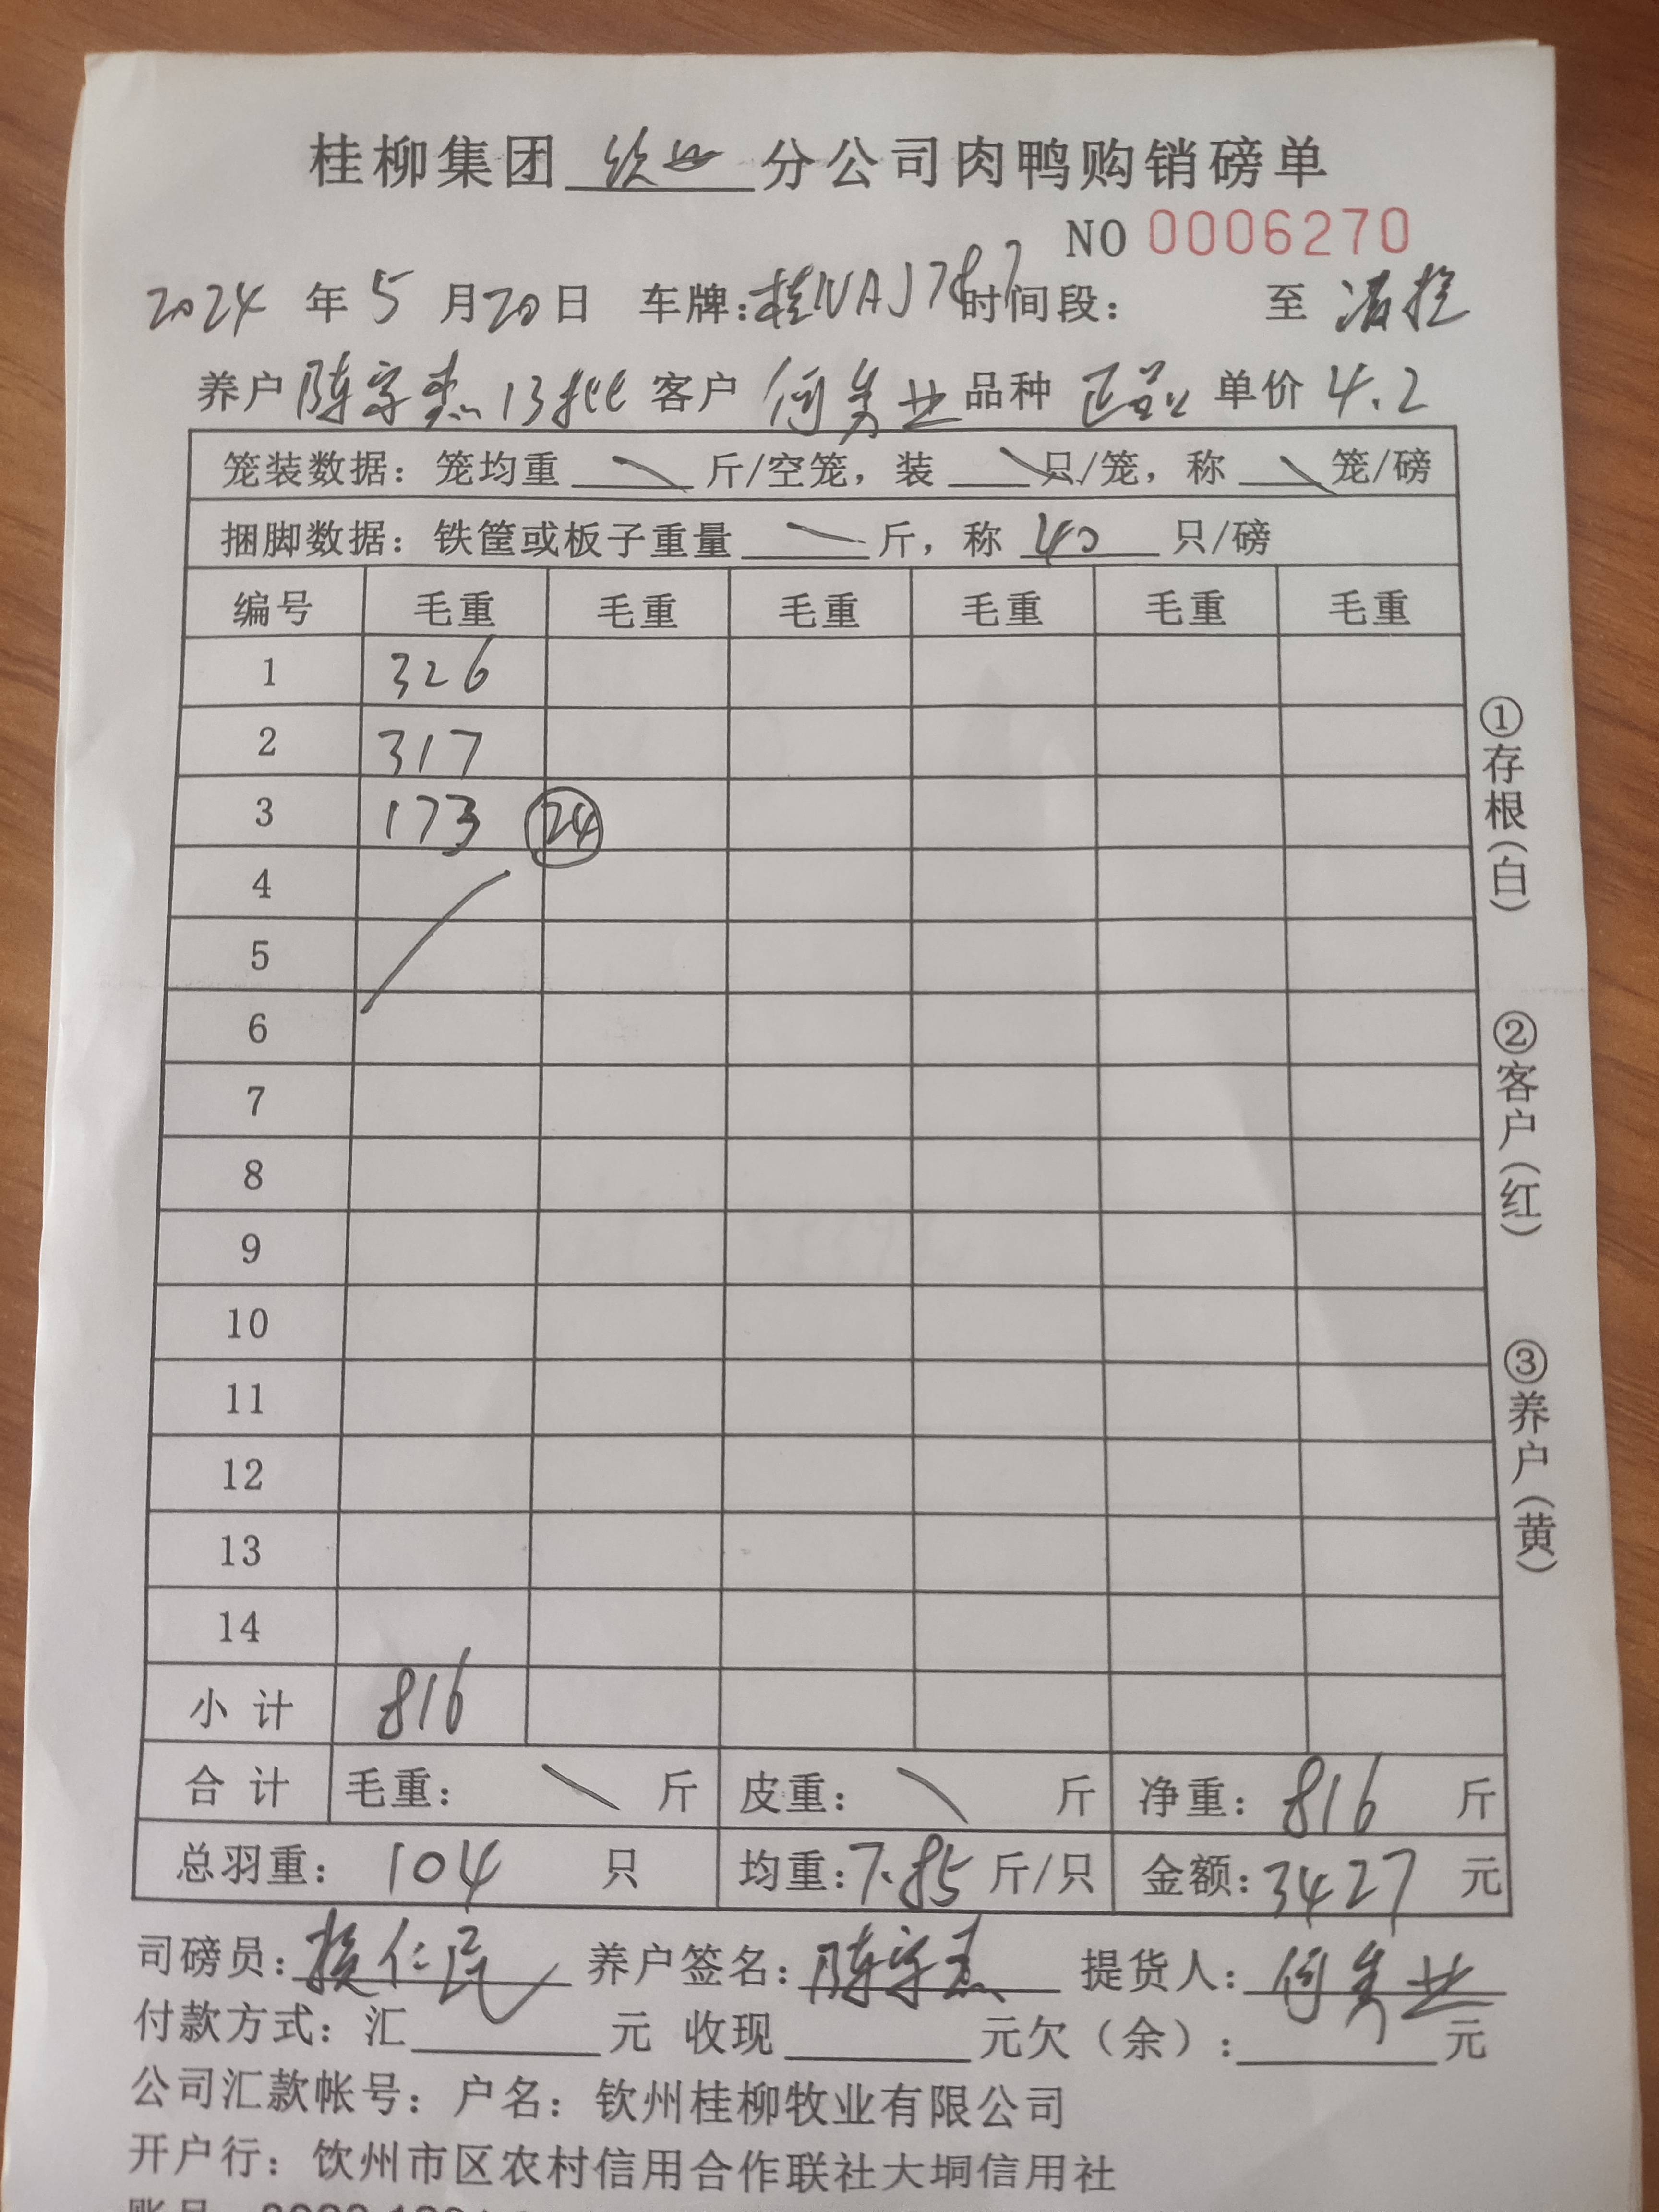 桂柳集团 钦州 分公司肉鸭购销磅单
NO 0006270
2024 年 5 月 20 日 车牌: 桂NAJ787 时间段: 至 清栏
养户 陈字杰 13批 客户 何美业 品种 正品 单价 4.2
笼装数据: 笼均重 斤/空笼, 装 只/笼, 称 笼/磅
捆脚数据: 铁筐或板子重量 斤, 称 40 只/磅
编号 毛重 毛重 毛重 毛重 毛重 毛重
1 326
2 317
3 173 24
4
5
6
7
8
9
10
11
12
13
14
小计 816
合计 毛重: 斤 皮重: 斤 净重: 816 斤
总羽重: 104 只 均重: 7.85 斤/只 金额: 3427 元
司磅员: 仁民 养户签名: 陈字杰 提货人: 何美业
付款方式: 汇 元 收现 元欠(余): 元
公司汇款帐号: 户名: 钦州桂柳牧业有限公司
开户行: 饮州市区农村信用合作联社大垌信用社
①存根(白)
②客户(红)
③养户(黄)